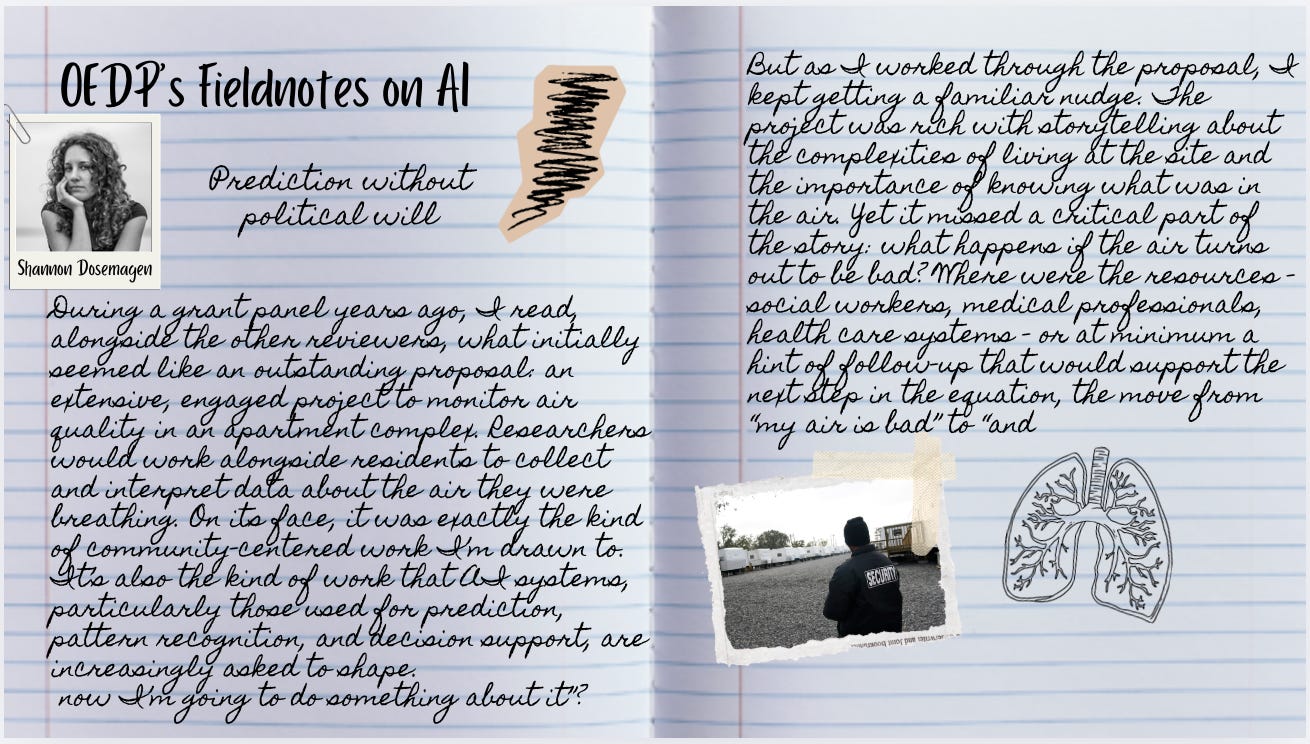 OEDP's Fieldnotes on AI
Shannon Dosemagen
Prediction without
political will
During a grant panel years ago, I read,
alongside the other reviewers, what initially
seemed like an outstanding proposal: an
extensive, engaged project to monitor air
quality in an apartment complex. Researchers
would work alongside residents to collect
and interpret data about the air they were
breathing. On its face, it was exactly the kind
of community-centered work I'm drawn to.
It's also the kind of work that AI systems,
particularly those used for prediction,
pattern recognition, and decision support, are
increasingly asked to shape.
now I'm going to do something about it"?
But as I worked through the proposal, I
kept getting a familiar nudge. The
project was rich with storytelling about
the complexities of living at the site and
the importance of knowing what was in
the air. Yet it missed a critical part of
the story: what happens if the air turns
out to be bad? Where were the resources -
social workers, medical professionals,
health care systems - or at minimum a
hint of follow-up that would support the
next step in the equation, the move from
"my air is bad" to "and
SECURITY